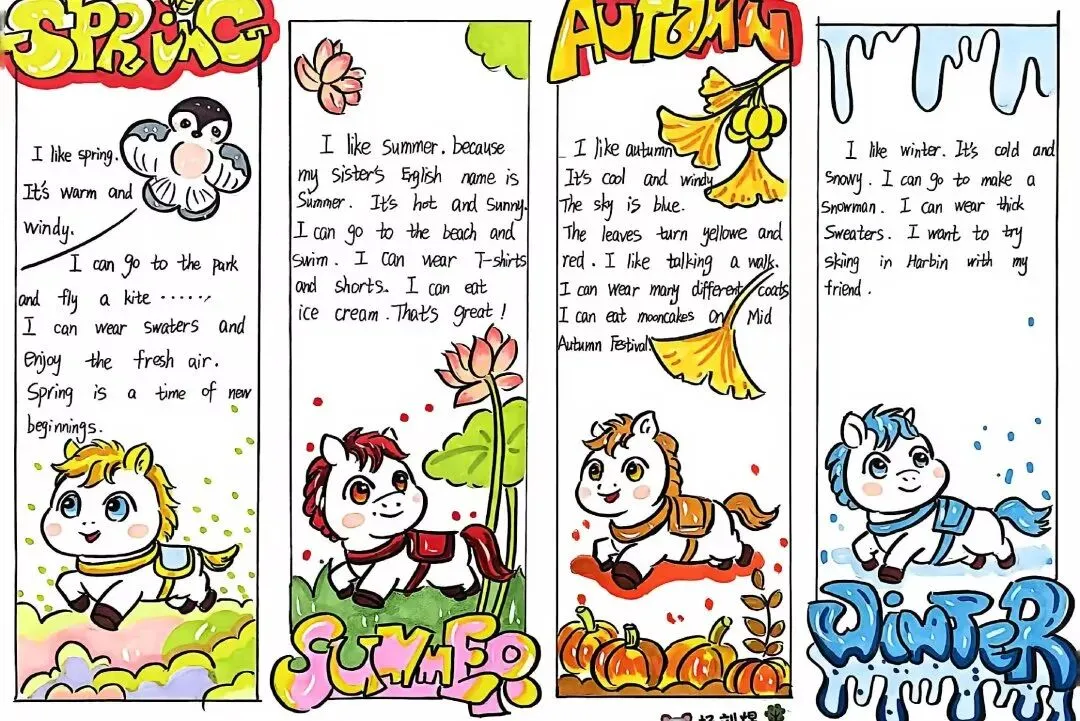 SPRING
I like spring.
It's warm and
windy.
I can go to the park
and fly a kite ······,
I can wear swaters and
enjoy the fresh air.
Spring is a time of new
beginnings.
I like Summer. because
my sister's Eglish name is
Summer. It's hot and Sunny.
I can go to the beach and
swim. I can wear T-shirts
and shorts. I can eat
ice cream. That's great!
SUMMER
AUTUMN
I like autumn
It's cool and windy
The sky is blue.
The leaves turn yellowe and
red. I like talking a walk.
I can wear many different coats
I can eat mooncakes on Mid
Autumn Festival.
I like winter. It's cold and
snowy. I can go to make a
snowman. I can wear thick
Sweaters. I want to try
skiing in Harbin with my
friend.
WINTER